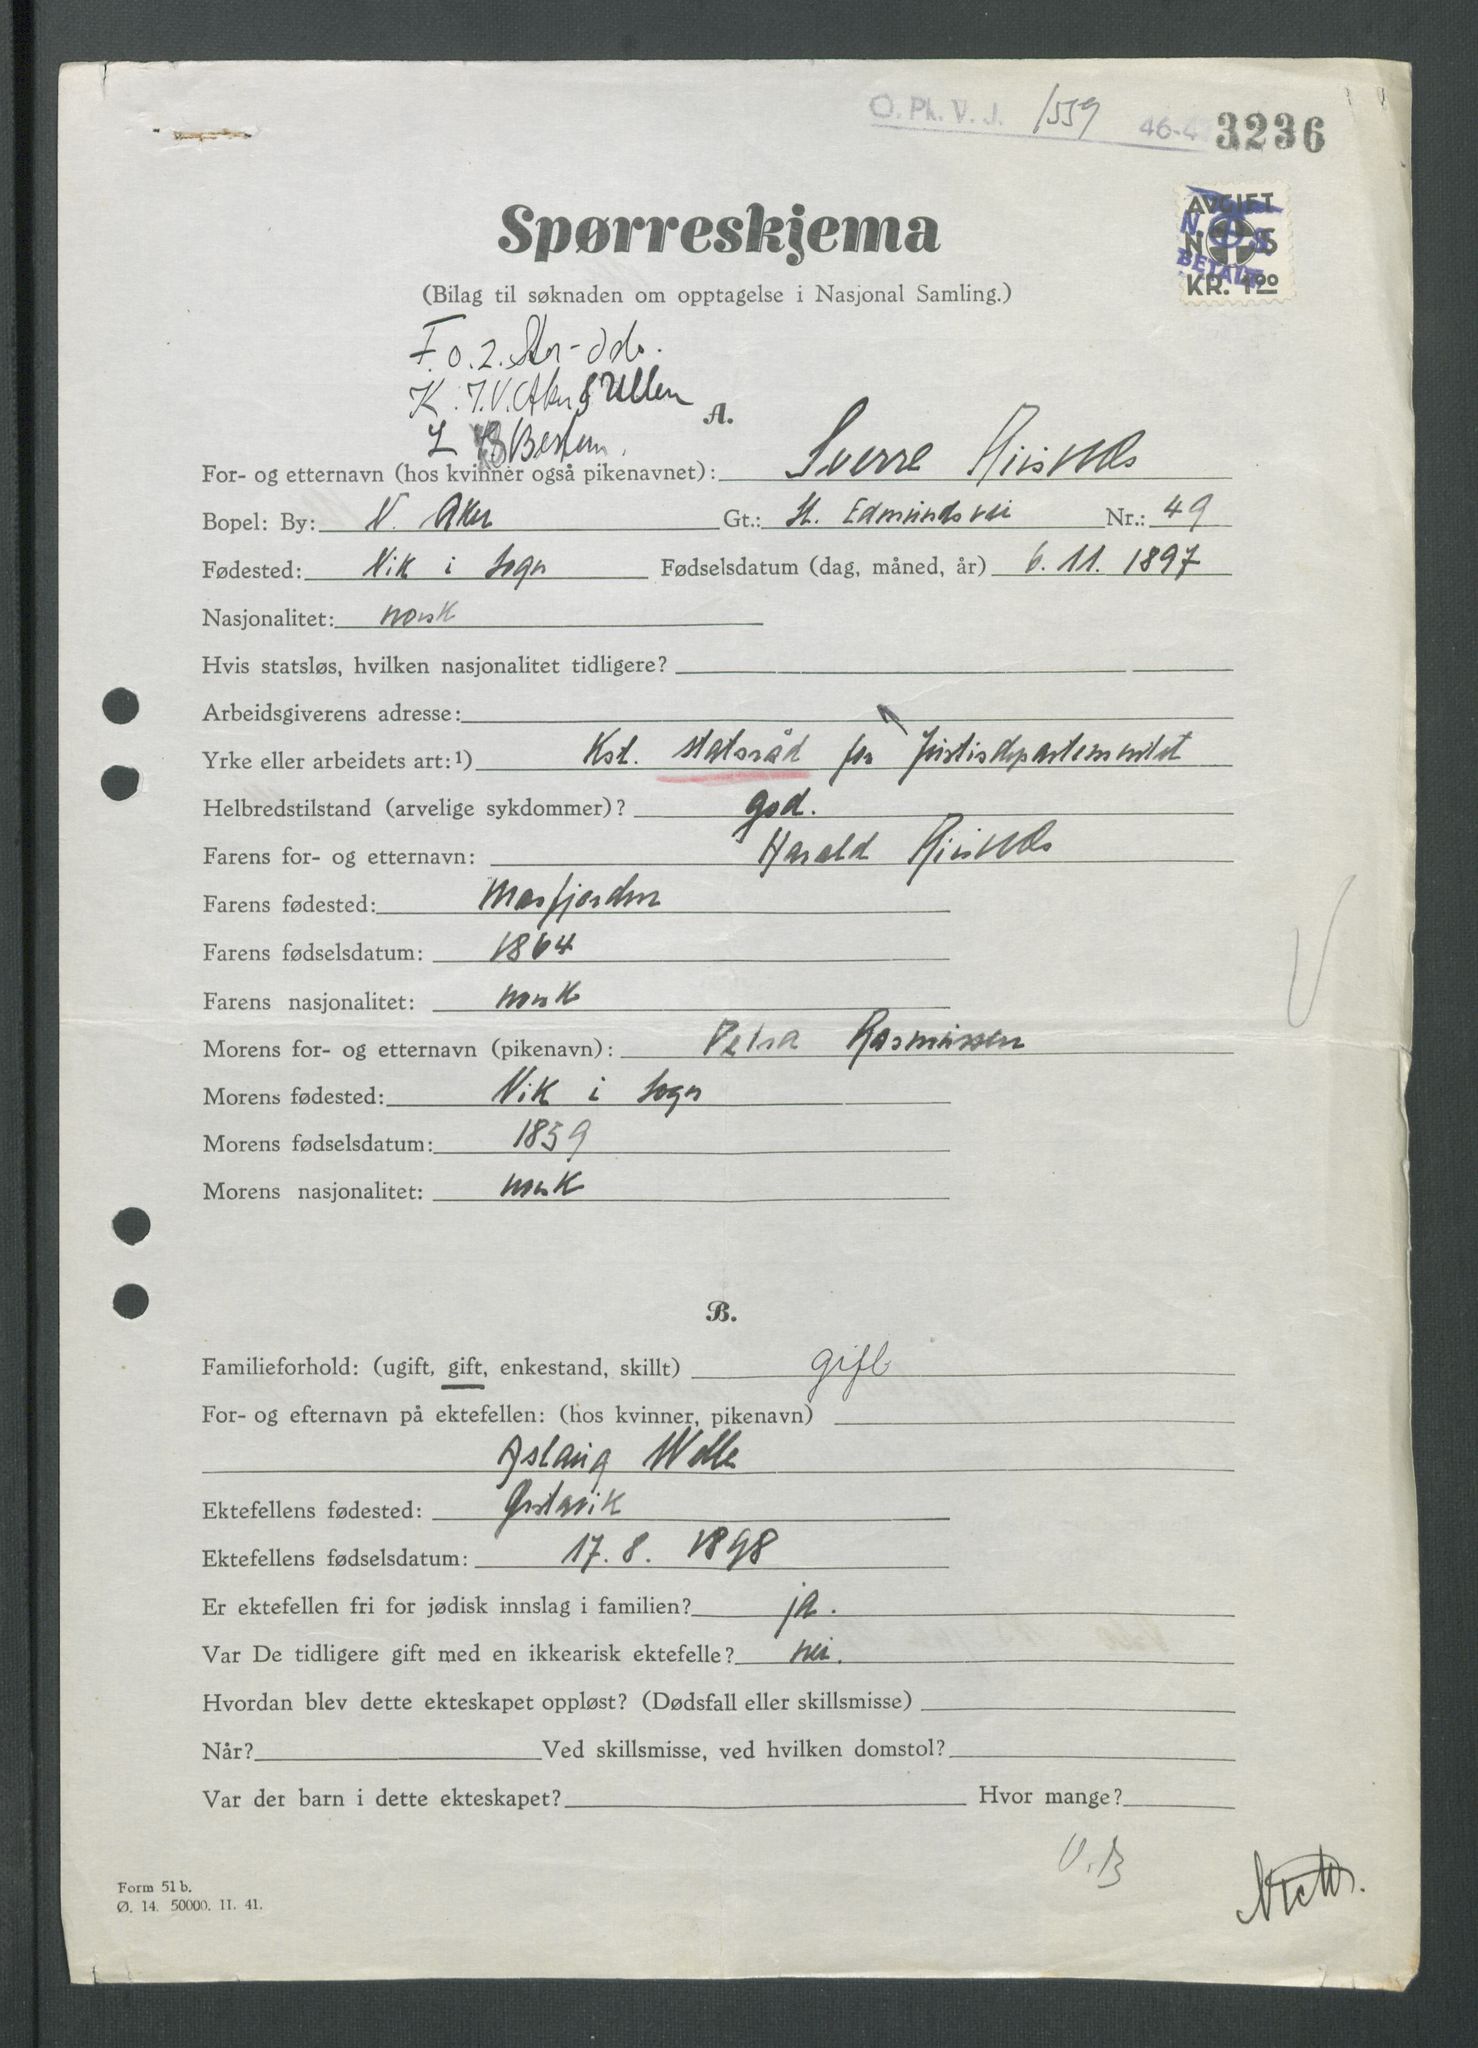 O. Ph. V. J. 1559 46-4
3236
AVGIFT
N S
KR. 1 00
N. S.
BETALT
Spørreskjema
(Bilag til søknaden om opptagelse i Nasjonal Samling.)
F. o. 2.
K. J.V. Aker Ullern
A.
For- og etternavn (hos kvinner også pikenavnet): Sverre Riisnæs
Bopel: By: V. Aker Gt.: St. Edmundsvei Nr.: 49
Fødested: Vik i Sogn Fødselsdatum (dag, måned, år) 6. 11. 1897
Nasjonalitet: norsk
Hvis statsløs, hvilken nasjonalitet tidligere?
Arbeidsgiverens adresse:
Yrke eller arbeidets art: 1) Kst. statsråd for Justisdepartementet
Helbredstilstand (arvelige sykdommer)? god.
Farens for- og etternavn: Harald Riisnæs
Farens fødested: Masfjorden
Farens fødselsdatum: 1864
Farens nasjonalitet: norsk
Morens for- og etternavn (pikenavn): Petra Rasmussen
Morens fødested: Vik i Sogn
Morens fødselsdatum: 1859
Morens nasjonalitet: norsk
B.
Familieforhold: (ugift, gift, enkestand, skillt) gift
For- og efternavn på ektefellen: (hos kvinner, pikenavn)
Aslaug Welle
Ektefellens fødested: Ørstavik
Ektefellens fødselsdatum: 17. 8. 1898
Er ektefellen fri for jødisk innslag i familien? ja.
Var De tidligere gift med en ikkearisk ektefelle? nei.
Hvordan blev dette ekteskapet oppløst? (Dødsfall eller skillsmisse)
Når? Ved skillsmisse, ved hvilken domstol?
Var der barn i dette ekteskapet? Hvor mange?
V. B
Form 51 b.
Ø. 14. 50000. 11. 41.